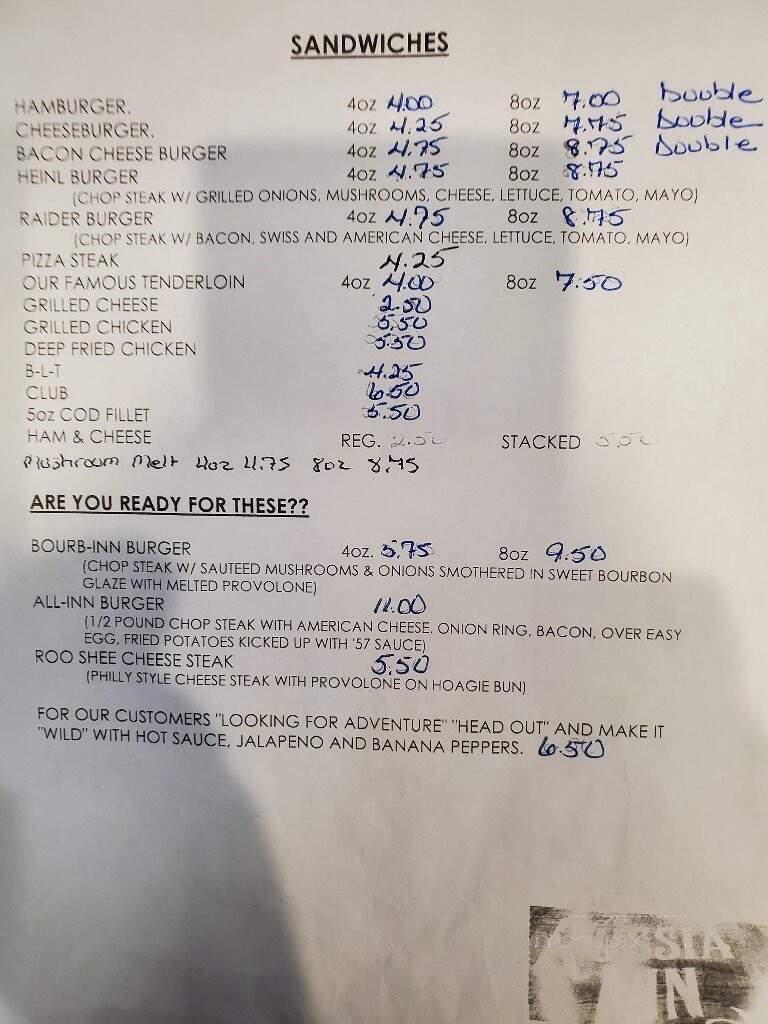 SANDWICHES
HAMBURGER. 4oz 4.00 8oz 7.00 Double
CHEESEBURGER. 4oz 4.25 8oz 7.75 Double
BACON CHEESE BURGER 4oz 4.75 8oz 8.75 Double
HEINL BURGER 4oz 4.75 8oz 8.75
(CHOP STEAK W/ GRILLED ONIONS, MUSHROOMS, CHEESE, LETTUCE, TOMATO, MAYO)
RAIDER BURGER 4oz 4.75 8oz 8.75
(CHOP STEAK W/ BACON, SWISS AND AMERICAN CHEESE, LETTUCE, TOMATO, MAYO)
PIZZA STEAK 4.25
OUR FAMOUS TENDERLOIN 4oz 4.00 8oz 7.50
GRILLED CHEESE 2.50
GRILLED CHICKEN 5.50
DEEP FRIED CHICKEN 5.50
B-L-T 4.25
CLUB 6.50
5oz COD FILLET 5.50
HAM & CHEESE REG. 2.50 STACKED 5.50
Mushroom Melt 4oz 4.75 8oz 8.75
ARE YOU READY FOR THESE??
BOURB-INN BURGER 4oz. 5.75 8oz 9.50
(CHOP STEAK W/ SAUTEED MUSHROOMS & ONIONS SMOTHERED IN SWEET BOURBON
GLAZE WITH MELTED PROVOLONE)
ALL-INN BURGER 11.00
(1/2 POUND CHOP STEAK WITH AMERICAN CHEESE, ONION RING, BACON, OVER EASY
EGG, FRIED POTATOES KICKED UP WITH '57 SAUCE)
ROO SHEE CHEESE STEAK 5.50
(PHILLY STYLE CHEESE STEAK WITH PROVOLONE ON HOAGIE BUN)
FOR OUR CUSTOMERS "LOOKING FOR ADVENTURE" "HEAD OUT" AND MAKE IT
"WILD" WITH HOT SAUCE, JALAPENO AND BANANA PEPPERS. 6.50